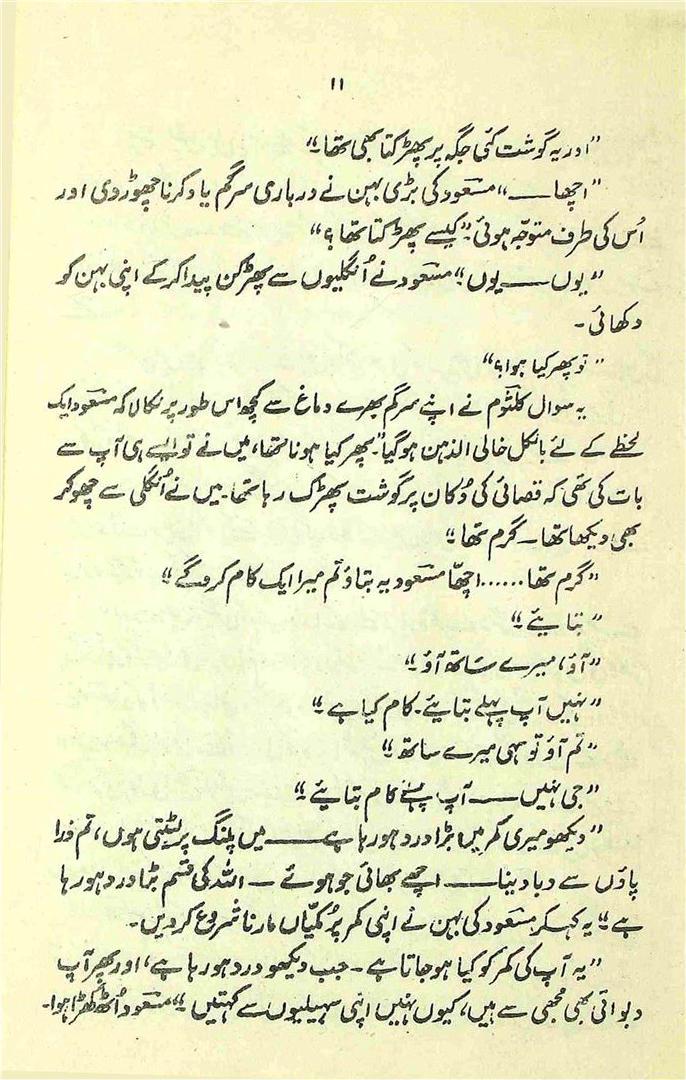 ۱۱
”اور یہ گوشت کئی جگہ پر پھڑکتا بھی تھا۔“
”اچھا——“ مسعود کی بڑی بہن نے درباری سرگم یاد کرنا چھوڑ دی اور
اُس کی طرف متوجہ ہوئی۔ ”کیسے پھڑکتا تھا؟“
”یوں——یوں۔“ مسعود نے اُنگلیوں سے پھڑکن پیدا کر کے اپنی بہن کو
دکھائی۔
”تو پھر کیا ہوا؟“
یہ سوال کلثوم نے اپنے سرگم بھرے دماغ سے کچھ اس طور پر نکالا کہ مسعود ایک
لحظے کے لئے بالکل خالی الذہن ہو گیا۔ ”پھر کیا ہونا تھا، میں نے تو ایسے ہی آپ سے
بات کی تھی کہ قصائی کی دُکان پر گوشت پھڑک رہا تھا۔ میں نے اُنگلی سے چھو کر
بھی دیکھا تھا۔ گرم تھا۔“
”گرم تھا......اچھّا مسعود یہ بتاؤ تم میرا ایک کام کرو گے۔“
”بتایئے۔“
”آؤ، میرے ساتھ آؤ۔“
”نہیں آپ پہلے بتایئے۔ کام کیا ہے۔“
”تم آؤ تو سہی میرے ساتھ۔“
”جی نہیں——آپ پہلے کام بتایئے۔“
”دیکھو میری کمر میں بڑا درد ہو رہا ہے——میں پلنگ پر لیٹتی ہوں، تم ذرا
پاؤں سے دبا دینا——اچھے بھائی جو ہوئے۔ اللہ کی قسم بڑا درد ہو رہا
ہے۔“ یہ کہہ کر مسعود کی بہن نے اپنی کمر پر مُکیّاں مارنا شروع کر دیں۔
”یہ آپ کی کمر کو کیا ہو جاتا ہے۔ جب دیکھو درد ہو رہا ہے، اور پھر آپ
دبواتی بھی مُجھی سے ہیں، کیوں نہیں اپنی سہیلیوں سے کہتیں۔“ مسعود اُٹھ کھڑا ہوا۔